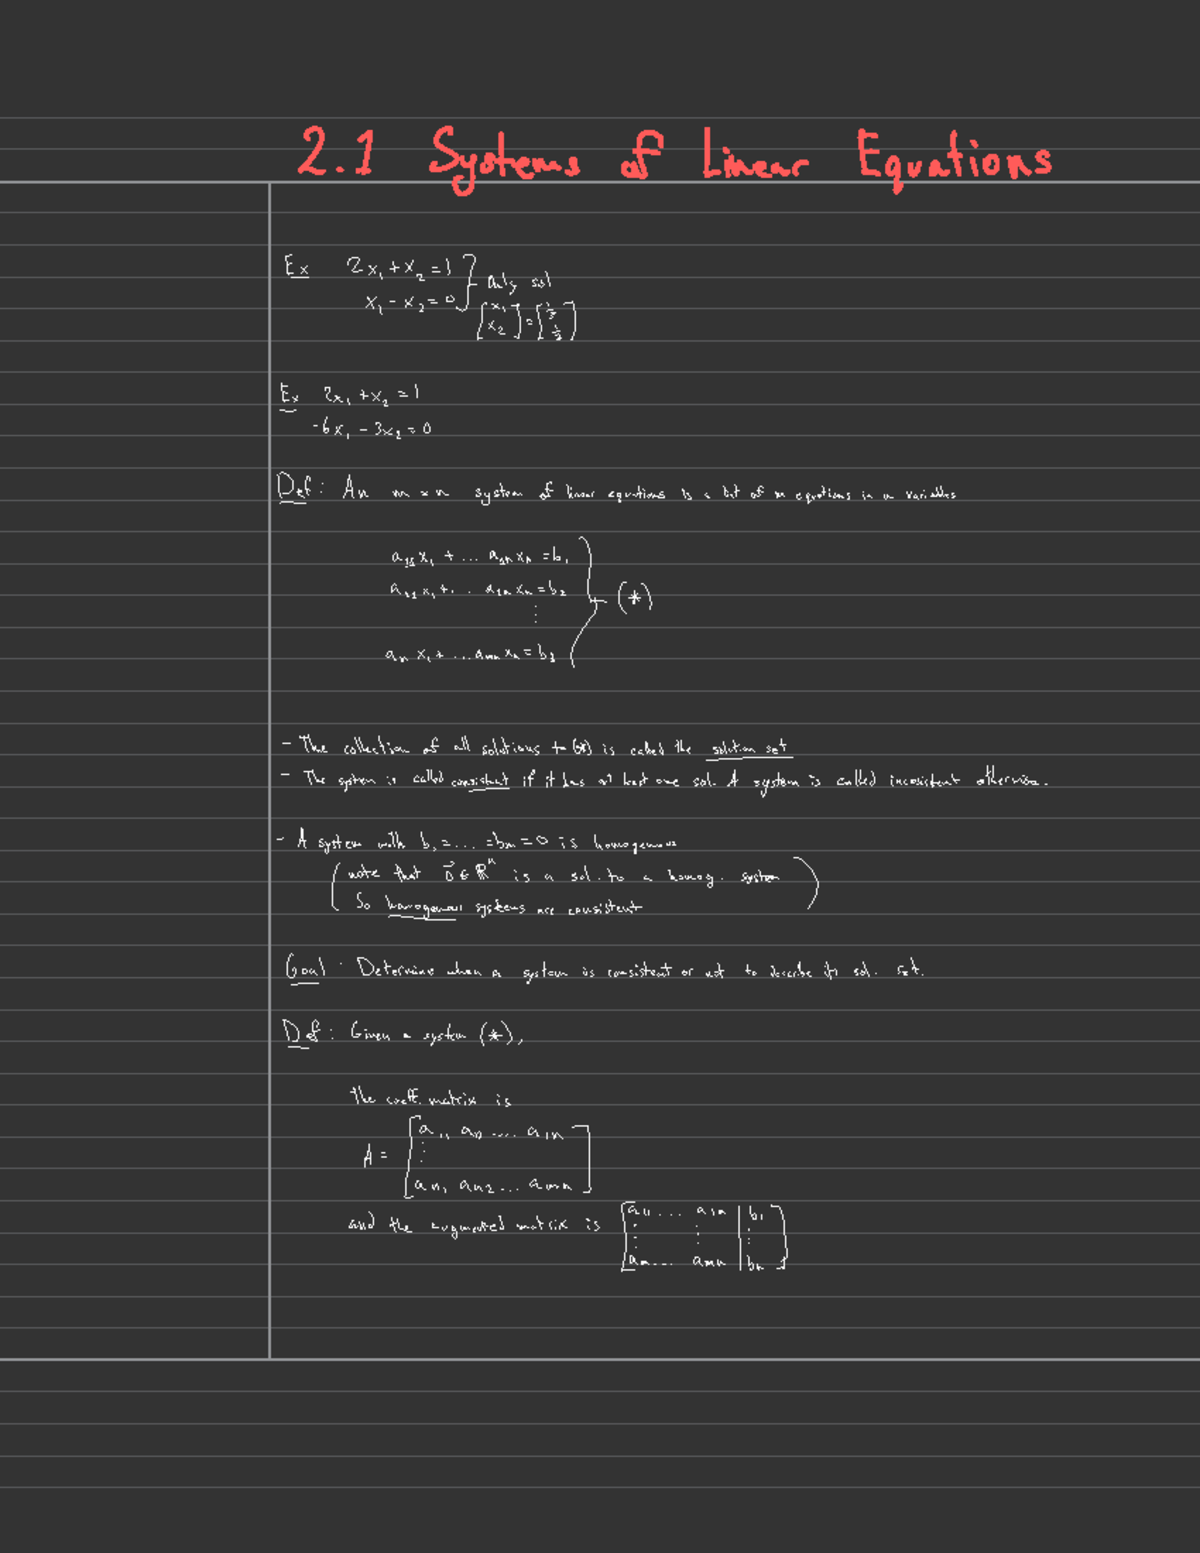 2.1 Systems of Linear Equations
Ex 2x₁ + x₂ = 1 } Only sol
x₁ - x₂ = 0
[x₁ x₂] = [1/3 1/3]
Ex 2x₁ + x₂ = 1
-6x₁ - 3x₂ = 0
Def: An m × n system of linear equations is a list of m equations in n variables
a₁₁x₁ + ... a₁ₙxₙ = b₁
a₂₁x₁ + ... a₂ₙxₙ = b₂ } (*)
⋮
x₁ + ... aₘₙxₙ =
- The collection of all solutions to (*) is called the solution set
- The system is called consistent if it has at least one sol. A system is called inconsistent otherwise.
- A system with b₁ = ... = bₘ = 0 is homogenous
(note that 0⃗ ∈ ℝⁿ is a sol. to a homog. system
So homogenous systems are consistent)
Goal: Determine when a system is consistent or not to describe its sol. set.
Def: Given a system (*),
the coeff. matrix is
A = [a₁₁ ... a₁ₙ
⋮
... aₘₙ]
and the augmented matrix is [a₁₁ ... a₁ₙ | b₁
⋮ ⋮ | ⋮
... aₘₙ | bₙ]